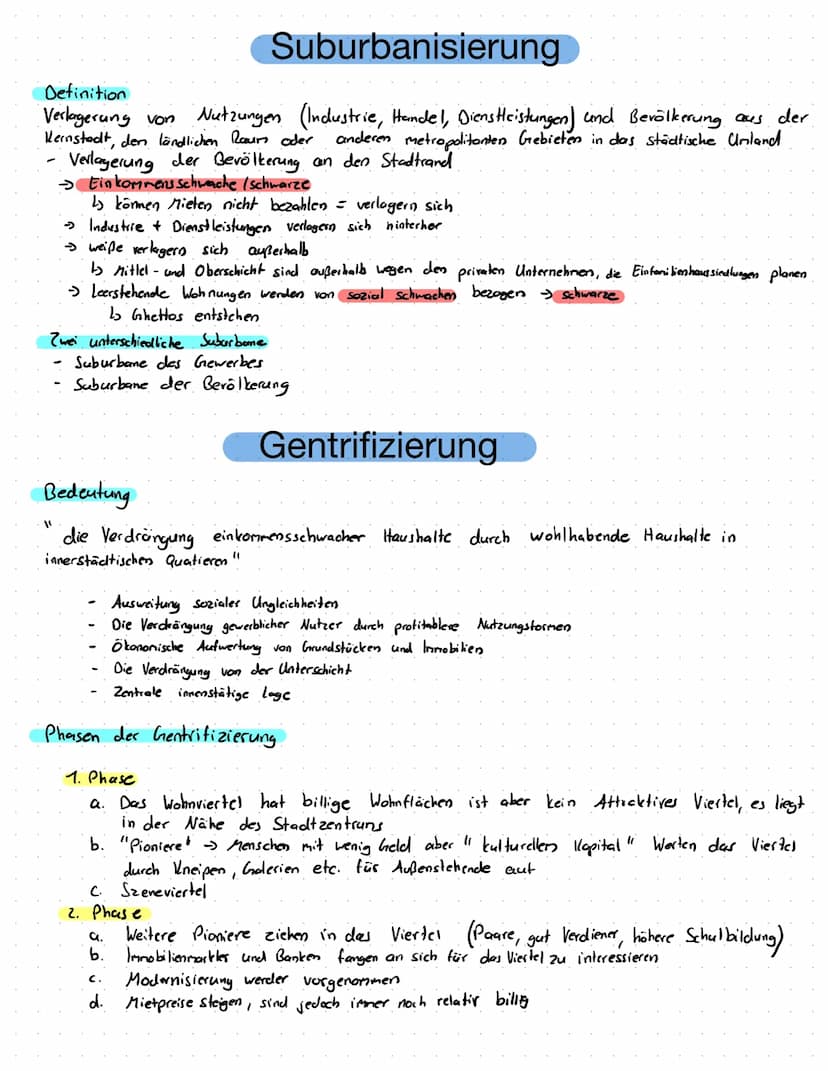 Suburbanisierung
Definition
Verlagerung von Nutzungen (Industrie, Handel, Dienstleistungen) und Bevölkerung aus der
Kernstadt, den ländlichen Raum oder anderen metropolitanten Gebieten in das städtische Umland
- Verlagerung der Bevölkerung an den Stadtrand
→ Einkommensschwache / schwarze
↳ können Mieten nicht bezahlen = verlagern sich
→ Industrie + Dienstleistungen verlagern sich hinterher
→ weiße verlagern sich außerhalb
↳ Mittel- und Oberschicht sind außerhalb wegen den privaten Unternehmen, die Einfamilienhaussiedlungen planen
→ Leerstehende Wohnungen werden von sozial schwachen bezogen → schwarze
↳ Ghettos entstehen
Zwei unterschiedliche Suburbane
- Suburbane des Gewerbes
- Suburbane der Bevölkerung
Gentrifizierung
Bedeutung
" die Verdrängung einkommensschwacher Haushalte durch wohlhabende Haushalte in
innerstädtischen Quatieren "
- Ausweitung sozialer Ungleichheiten
- Die Verdrängung gewerblicher Nutzer durch profitablere Nutzungsformen
- Ökonomische Aufwertung von Grundstücken und Immobilien
- Die Verdrängung von der Unterschicht
- Zentrale innenstätige Lage
Phasen der Gentrifizierung
1. Phase
a. Das Wohnviertel hat billige Wohnflächen ist aber kein Attraktives Viertel, es liegt
in der Nähe des Stadtzentrums
b. "Pioniere" → Menschen mit wenig Geld aber " kulturellem Kapital " Werten das Viertel
durch Kneipen, Galerien etc. für Außenstehende auf
c. Szeneviertel
2. Phase
a. Weitere Pioniere ziehen in das Viertel (Paare, gut Verdiener, höhere Schulbildung)
b. Immobilienmarkler und Banken fangen an sich für das Viertel zu interessieren
c. Modernisierung werder vorgenommen
d. Mietpreise steigen, sind jedoch immer noch relativ billig